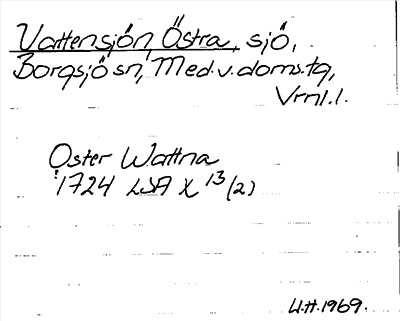 Vattensjön, Östra, sjö,
Borgsjö sn, Med.v.doms.tg,
Vrnl.l.
Oster Wattna
1724 LSA X 13 (2)
U.H.1969.